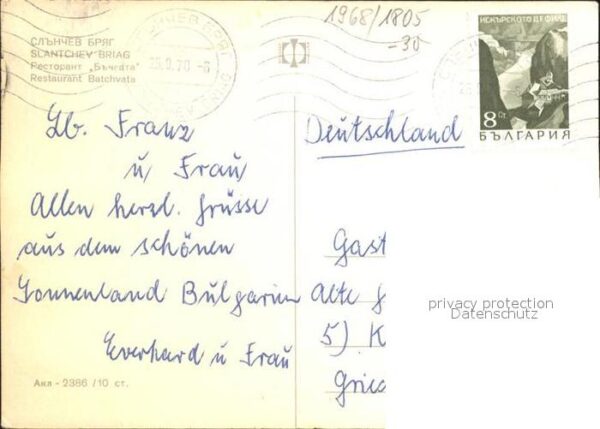 СЛЪНЧЕВ БРЯГ
SLANTCHEV BRIAG
Ресторант „Бъчвата“
Restaurant Batchvata
1968/1805
-30
25.9.70.-6
ИСКЪРСКОТО ДЕФИЛЕ
8 Ст.
БЪЛГАРИЯ
Lb. Franz
u Frau
Allen herzl. Grüsse
aus dem schönen
Sonnenland Bulgarien
Everhard u Frau
Deutschland
Gast
Alte
5) K
Grie
privacy protection
Datenschutz
Акл - 2386 / 10 ст.